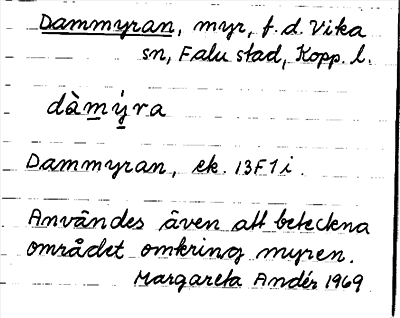 Dammyran, myr, f.d. Vika
sn, Falu stad, Kopp. l.
dàmýra
Dammyran, ek. 13F1i.
Användes även att beteckna
området omkring myren.
Margareta Andér 1969